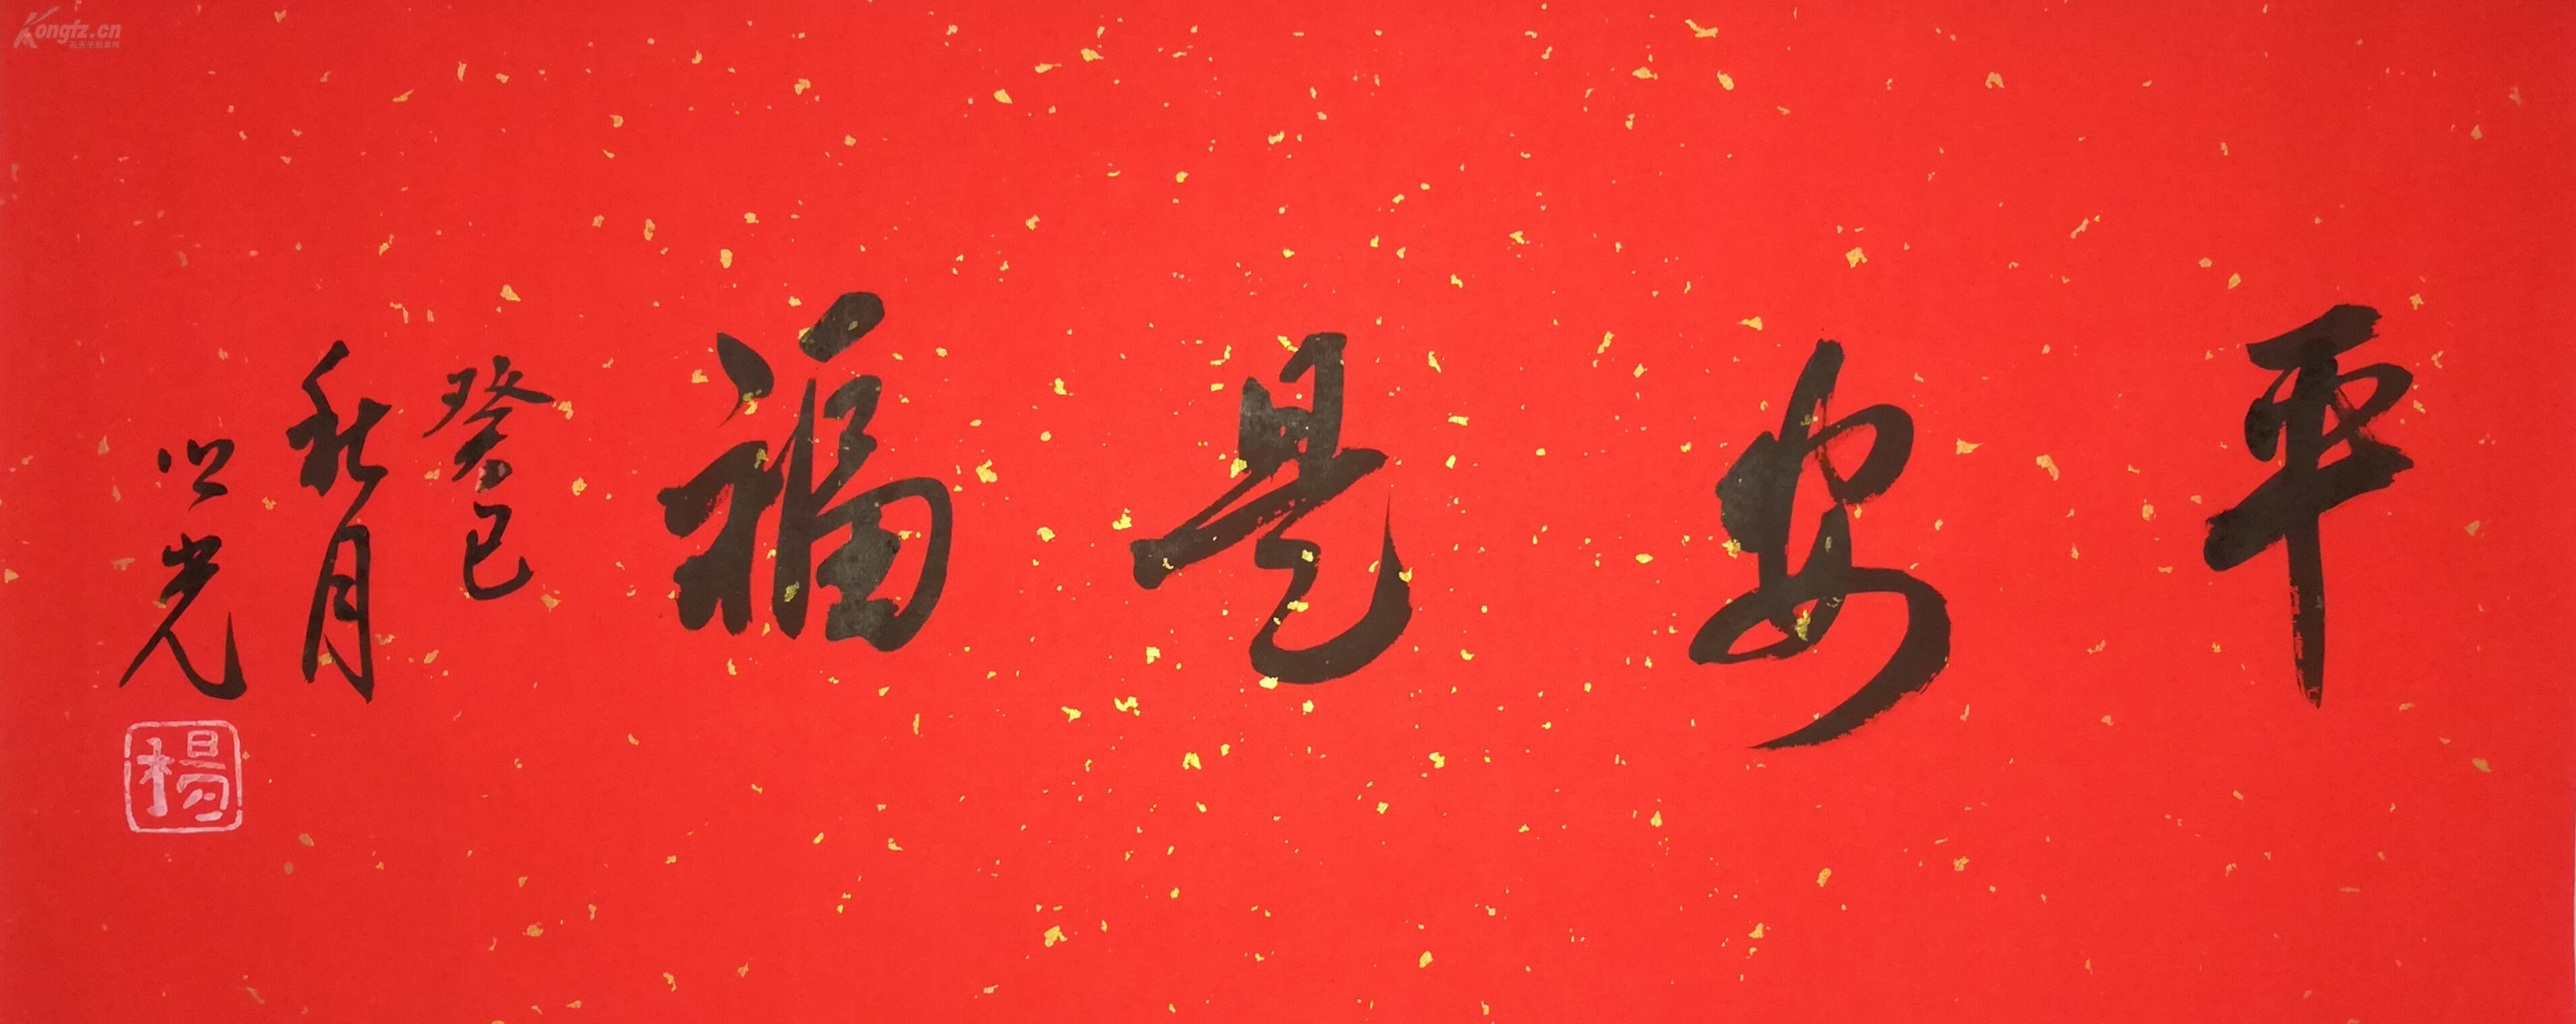 平安是福
癸巳
秋月
光
楊
Kongfz.cn
孔夫子旧书网